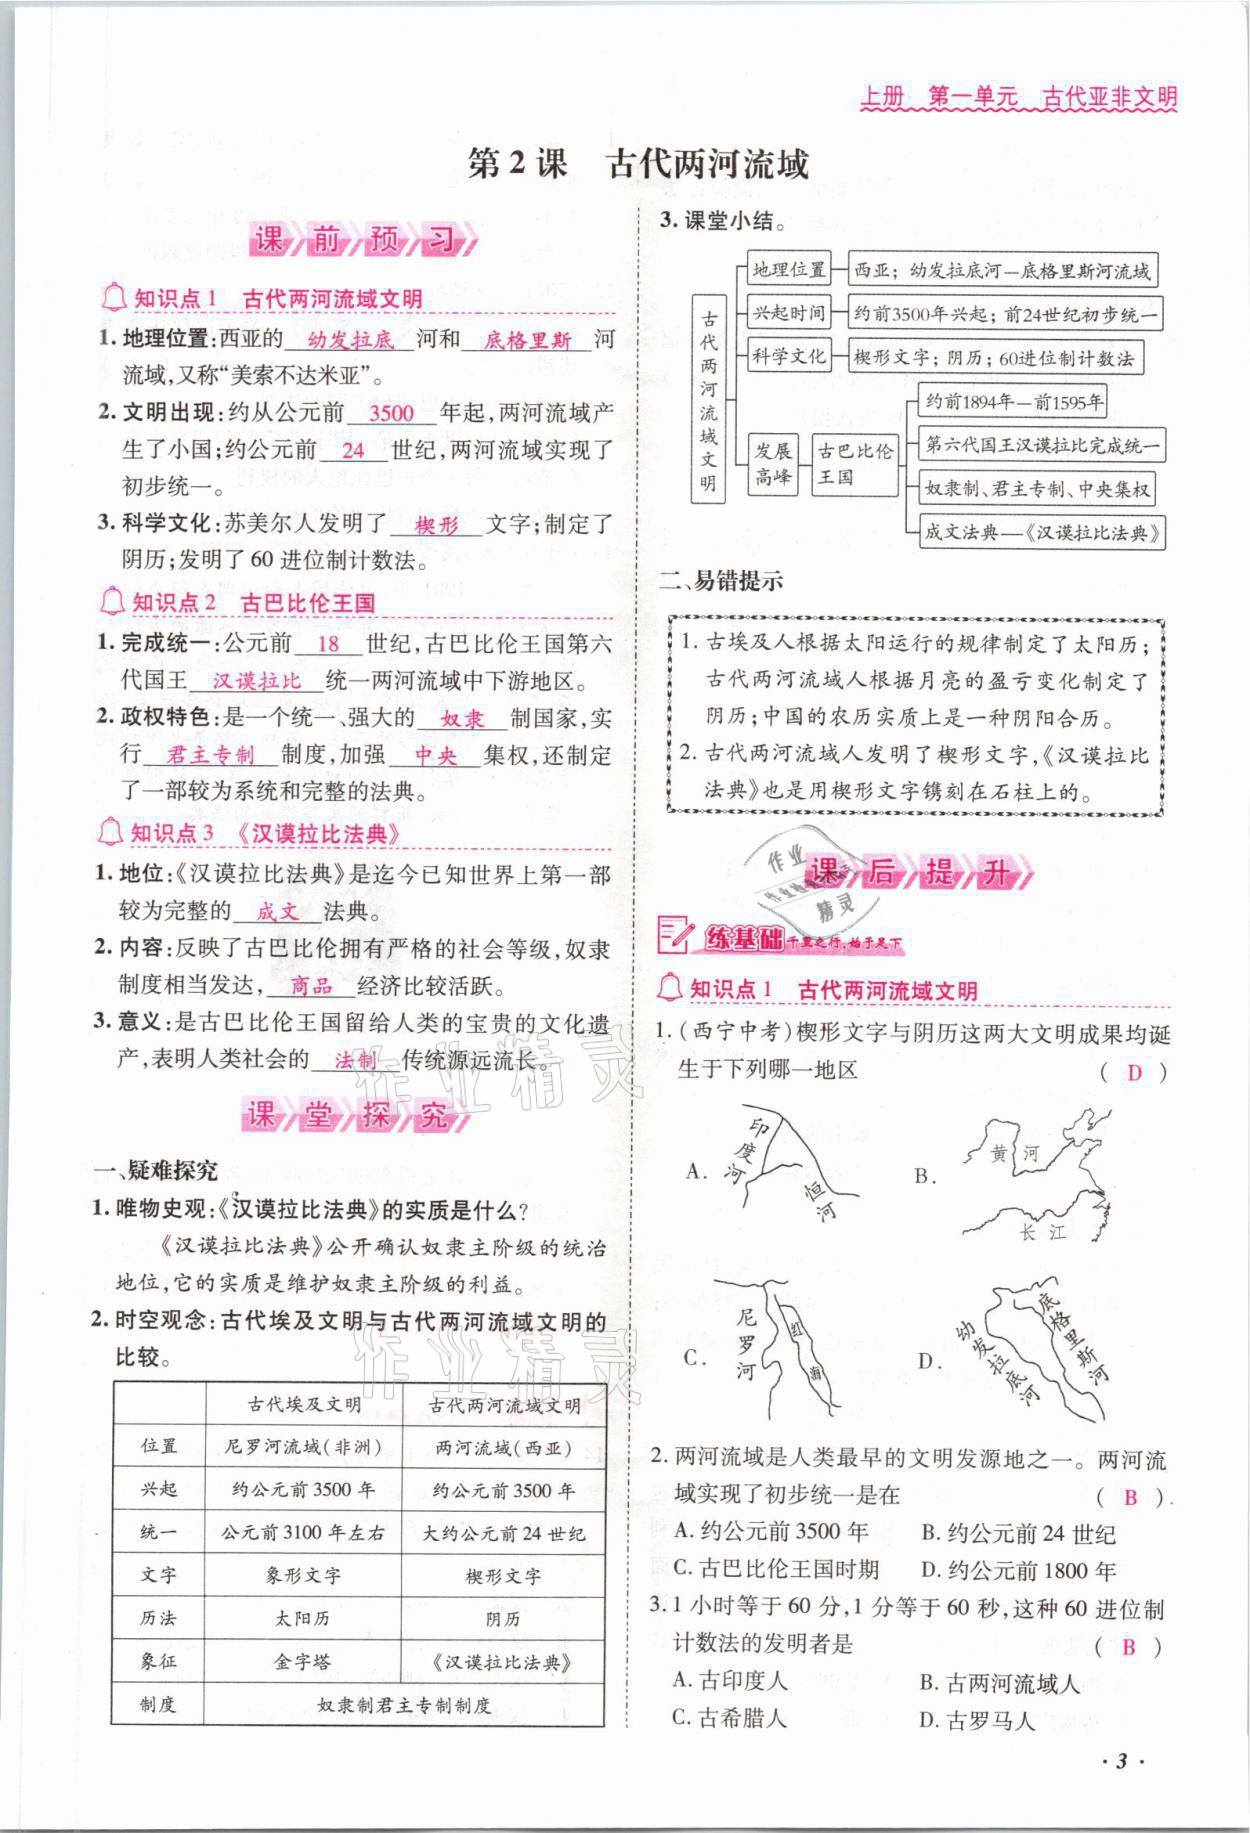 上册 第一单元 古代亚非文明
第2课 古代两河流域
课前预习
知识点1 古代两河流域文明
1. 地理位置:西亚的 幼发拉底 河和 底格里斯 河
流域,又称“美索不达米亚”。
2. 文明出现:约从公元前 3500 年起,两河流域产
生了小国;约公元前 24 世纪,两河流域实现了
初步统一。
3. 科学文化:苏美尔人发明了 楔形 文字;制定了
阴历;发明了60进位制计数法。
知识点2 古巴比伦王国
1. 完成统一:公元前 18 世纪,古巴比伦王国第六
代国王 汉谟拉比 统一两河流域中下游地区。
2. 政权特色:是一个统一、强大的 奴隶 制国家,实
行 君主专制 制度,加强 中央 集权,还制定
了一部较为系统和完整的法典。
知识点3 《汉谟拉比法典》
1. 地位:《汉谟拉比法典》是迄今已知世界上第一部
较为完整的 成文 法典。
2. 内容:反映了古巴比伦拥有严格的社会等级,奴隶
制度相当发达, 商品 经济比较活跃。
3. 意义:是古巴比伦王国留给人类的宝贵的文化遗
产,表明人类社会的 法制 传统源远流长。
课堂探究
一、疑难探究
1. 唯物史观:《汉谟拉比法典》的实质是什么?
《汉谟拉比法典》公开确认奴隶主阶级的统治
地位,它的实质是维护奴隶主阶级的利益。
2. 时空观念:古代埃及文明与古代两河流域文明的
比较。
古代埃及文明 古代两河流域文明
位置 尼罗河流域(非洲) 两河流域(西亚)
兴起 约公元前3500年 约公元前3500年
统一 公元前3100年左右 大约公元前24世纪
文字 象形文字 楔形文字
历法 太阳历 阴历
象征 金字塔 《汉谟拉比法典》
制度 奴隶制君主专制制度
3. 课堂小结。
古代两河流域文明
地理位置 西亚;幼发拉底河—底格里斯河流域
兴起时间 约前3500年兴起;前24世纪初步统一
科学文化 楔形文字;阴历;60进位制计数法
发展高峰 古巴比伦王国
约前1894年—前1595年
第六代国王汉谟拉比完成统一
奴隶制、君主专制、中央集权
成文法典—《汉谟拉比法典》
二、易错提示
1. 古埃及人根据太阳运行的规律制定了太阳历;
古代两河流域人根据月亮的盈亏变化制定了
阴历;中国的农历实质上是一种阴阳合历。
2. 古代两河流域人发明了楔形文字,《汉谟拉比
法典》也是用楔形文字镌刻在石柱上的。
课后提升
练基础 千里之行,始于足下
知识点1 古代两河流域文明
1. (西宁中考)楔形文字与阴历这两大文明成果均诞
生于下列哪一地区 ( D )
A. 印度河 恒河
B. 黄河 长江
C. 尼罗河 红海
D. 幼发拉底河 底格里斯河
2. 两河流域是人类最早的文明发源地之一。两河流
域实现了初步统一是在 ( B )
A. 约公元前3500年 B. 约公元前24世纪
C. 古巴比伦王国时期 D. 约公元前1800年
3. 1小时等于60分,1分等于60秒,这种60进位制
计数法的发明者是 ( B )
A. 古印度人 B. 古两河流域人
C. 古希腊人 D. 古罗马人
· 3 ·
作业精灵
作业精灵
作业
精灵